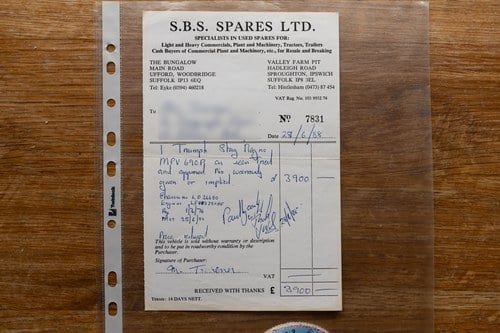 S.B.S. SPARES LTD.
SPECIALISTS IN USED SPARES FOR:
Light and Heavy Commercials, Plant and Machinery, Tractors, Trailers
Cash Buyers of Commercial Plant and Machinery, etc., for Resale and Breaking
THE BUNGALOW
MAIN ROAD
UFFORD, WOODBRIDGE
SUFFOLK IP13 6EQ
Tel: Eyke (0394) 460218
VALLEY FARM PIT
HADLEIGH ROAD
SPROUGHTON, IPSWICH
SUFFOLK IP8 3EL
Tel: Hintlesham (0473) 87 454
VAT Reg. No. 103 9932 74
To
No 7831
Date 28/6/88
1 Triumph Stag Reg no
MPV 690P as seen tried
and approved No warranty
given or implied @ 3900 —
Price agreed
This vehicle is sold without warranty or description
and to be put in roadworthy condition by the
Purchaser.
Signature of Purchaser:
VAT
RECEIVED WITH THANKS £ 3900 —
TERMS: 14 DAYS NETT.